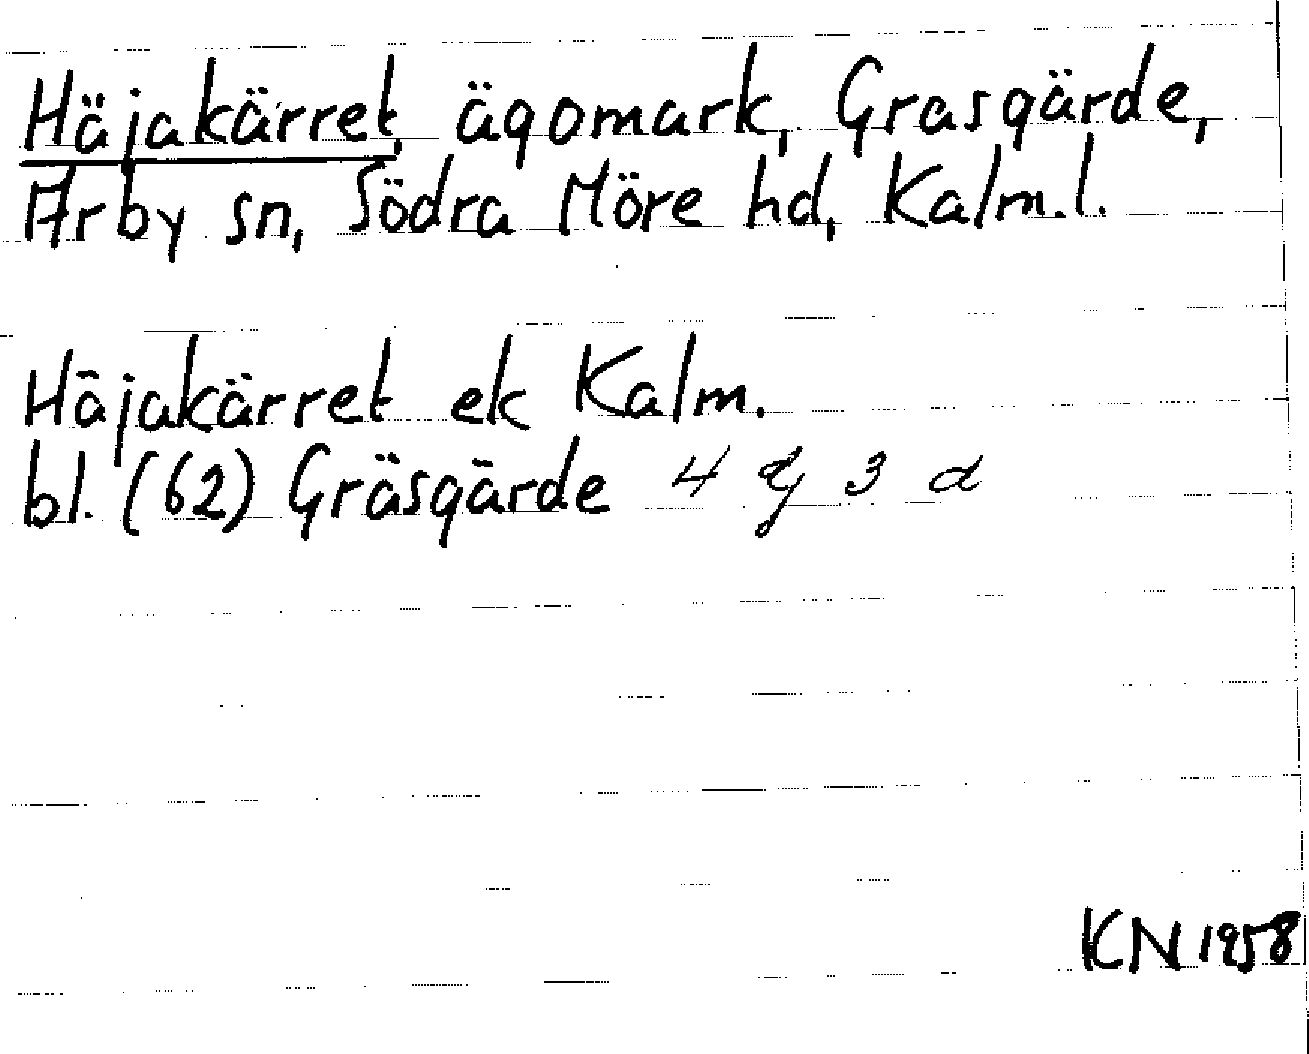 Häjakärret, ägomark, Grasgärde,
Arby sn, Södra Möre hd, Kalm.l.
Häjakärret ek Kalm.
bl. (62) Gräsgärde 4 g 3 d
KN 1958